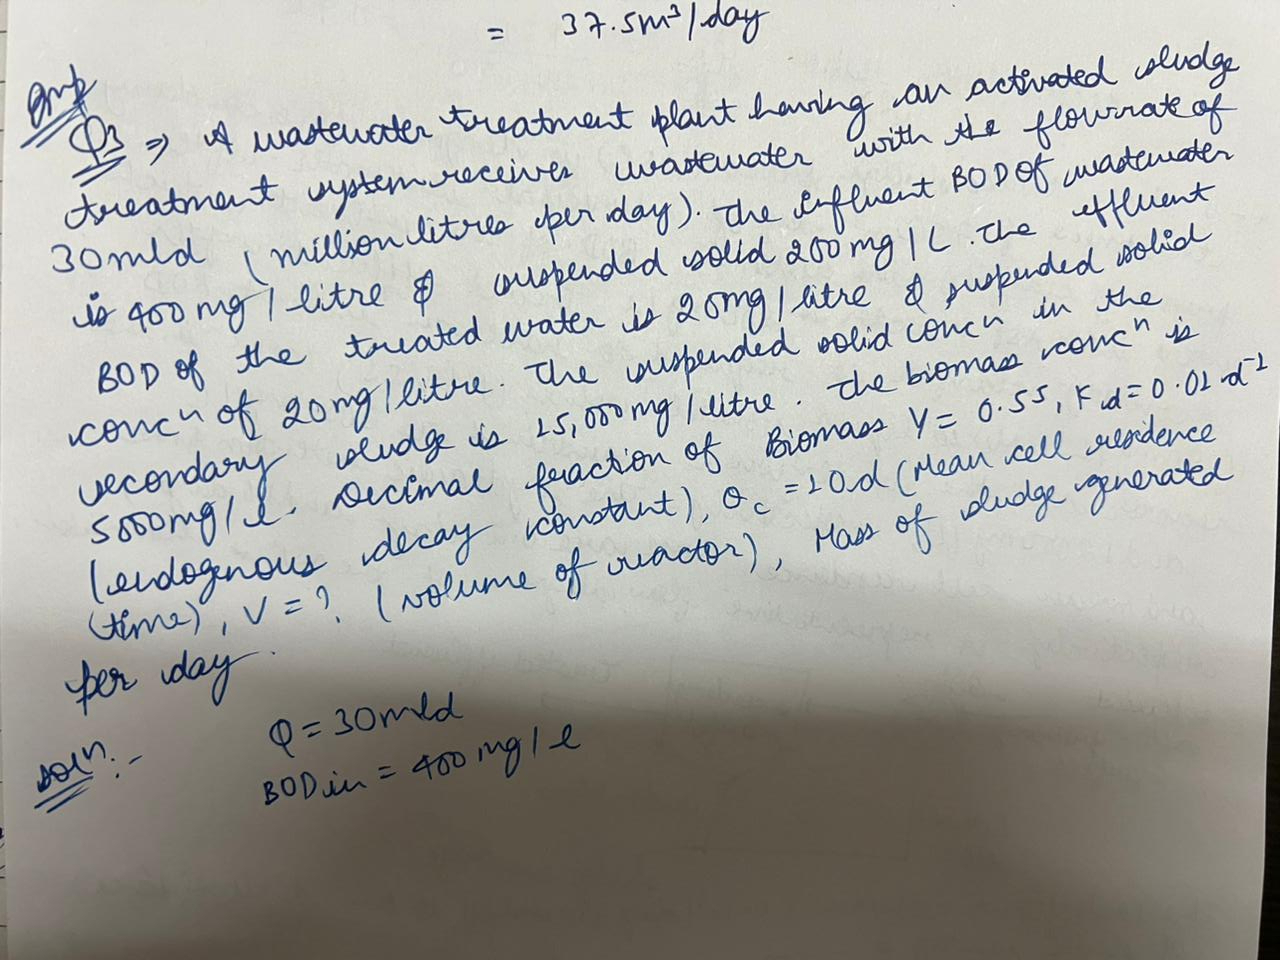 = 37.5m³/day
Imp
Q3 ⇒ A wastewater treatment plant having an activated sludge
treatment system receives wastewater with the flowrate of
30mld (million litres per day). The influent BOD of wastewater
is 400 mg/litre & suspended solid 200 mg/L. The effluent
BOD of the treated water is 20mg/litre & suspended solid
concn of 20 mg/litre. The suspended solid concn in the
secondary sludge is 15,000 mg/litre. The biomass concn is
5000mg/l. Decimal fraction of Biomass Y = 0.55, Kd = 0.01 d-1
(endogenous decay constant), θc = 10d (Mean cell residence
time), V = ? (volume of reactor), Mass of sludge generated
per day.
soln:-
Q = 30mld
BOD in = 400 mg/l